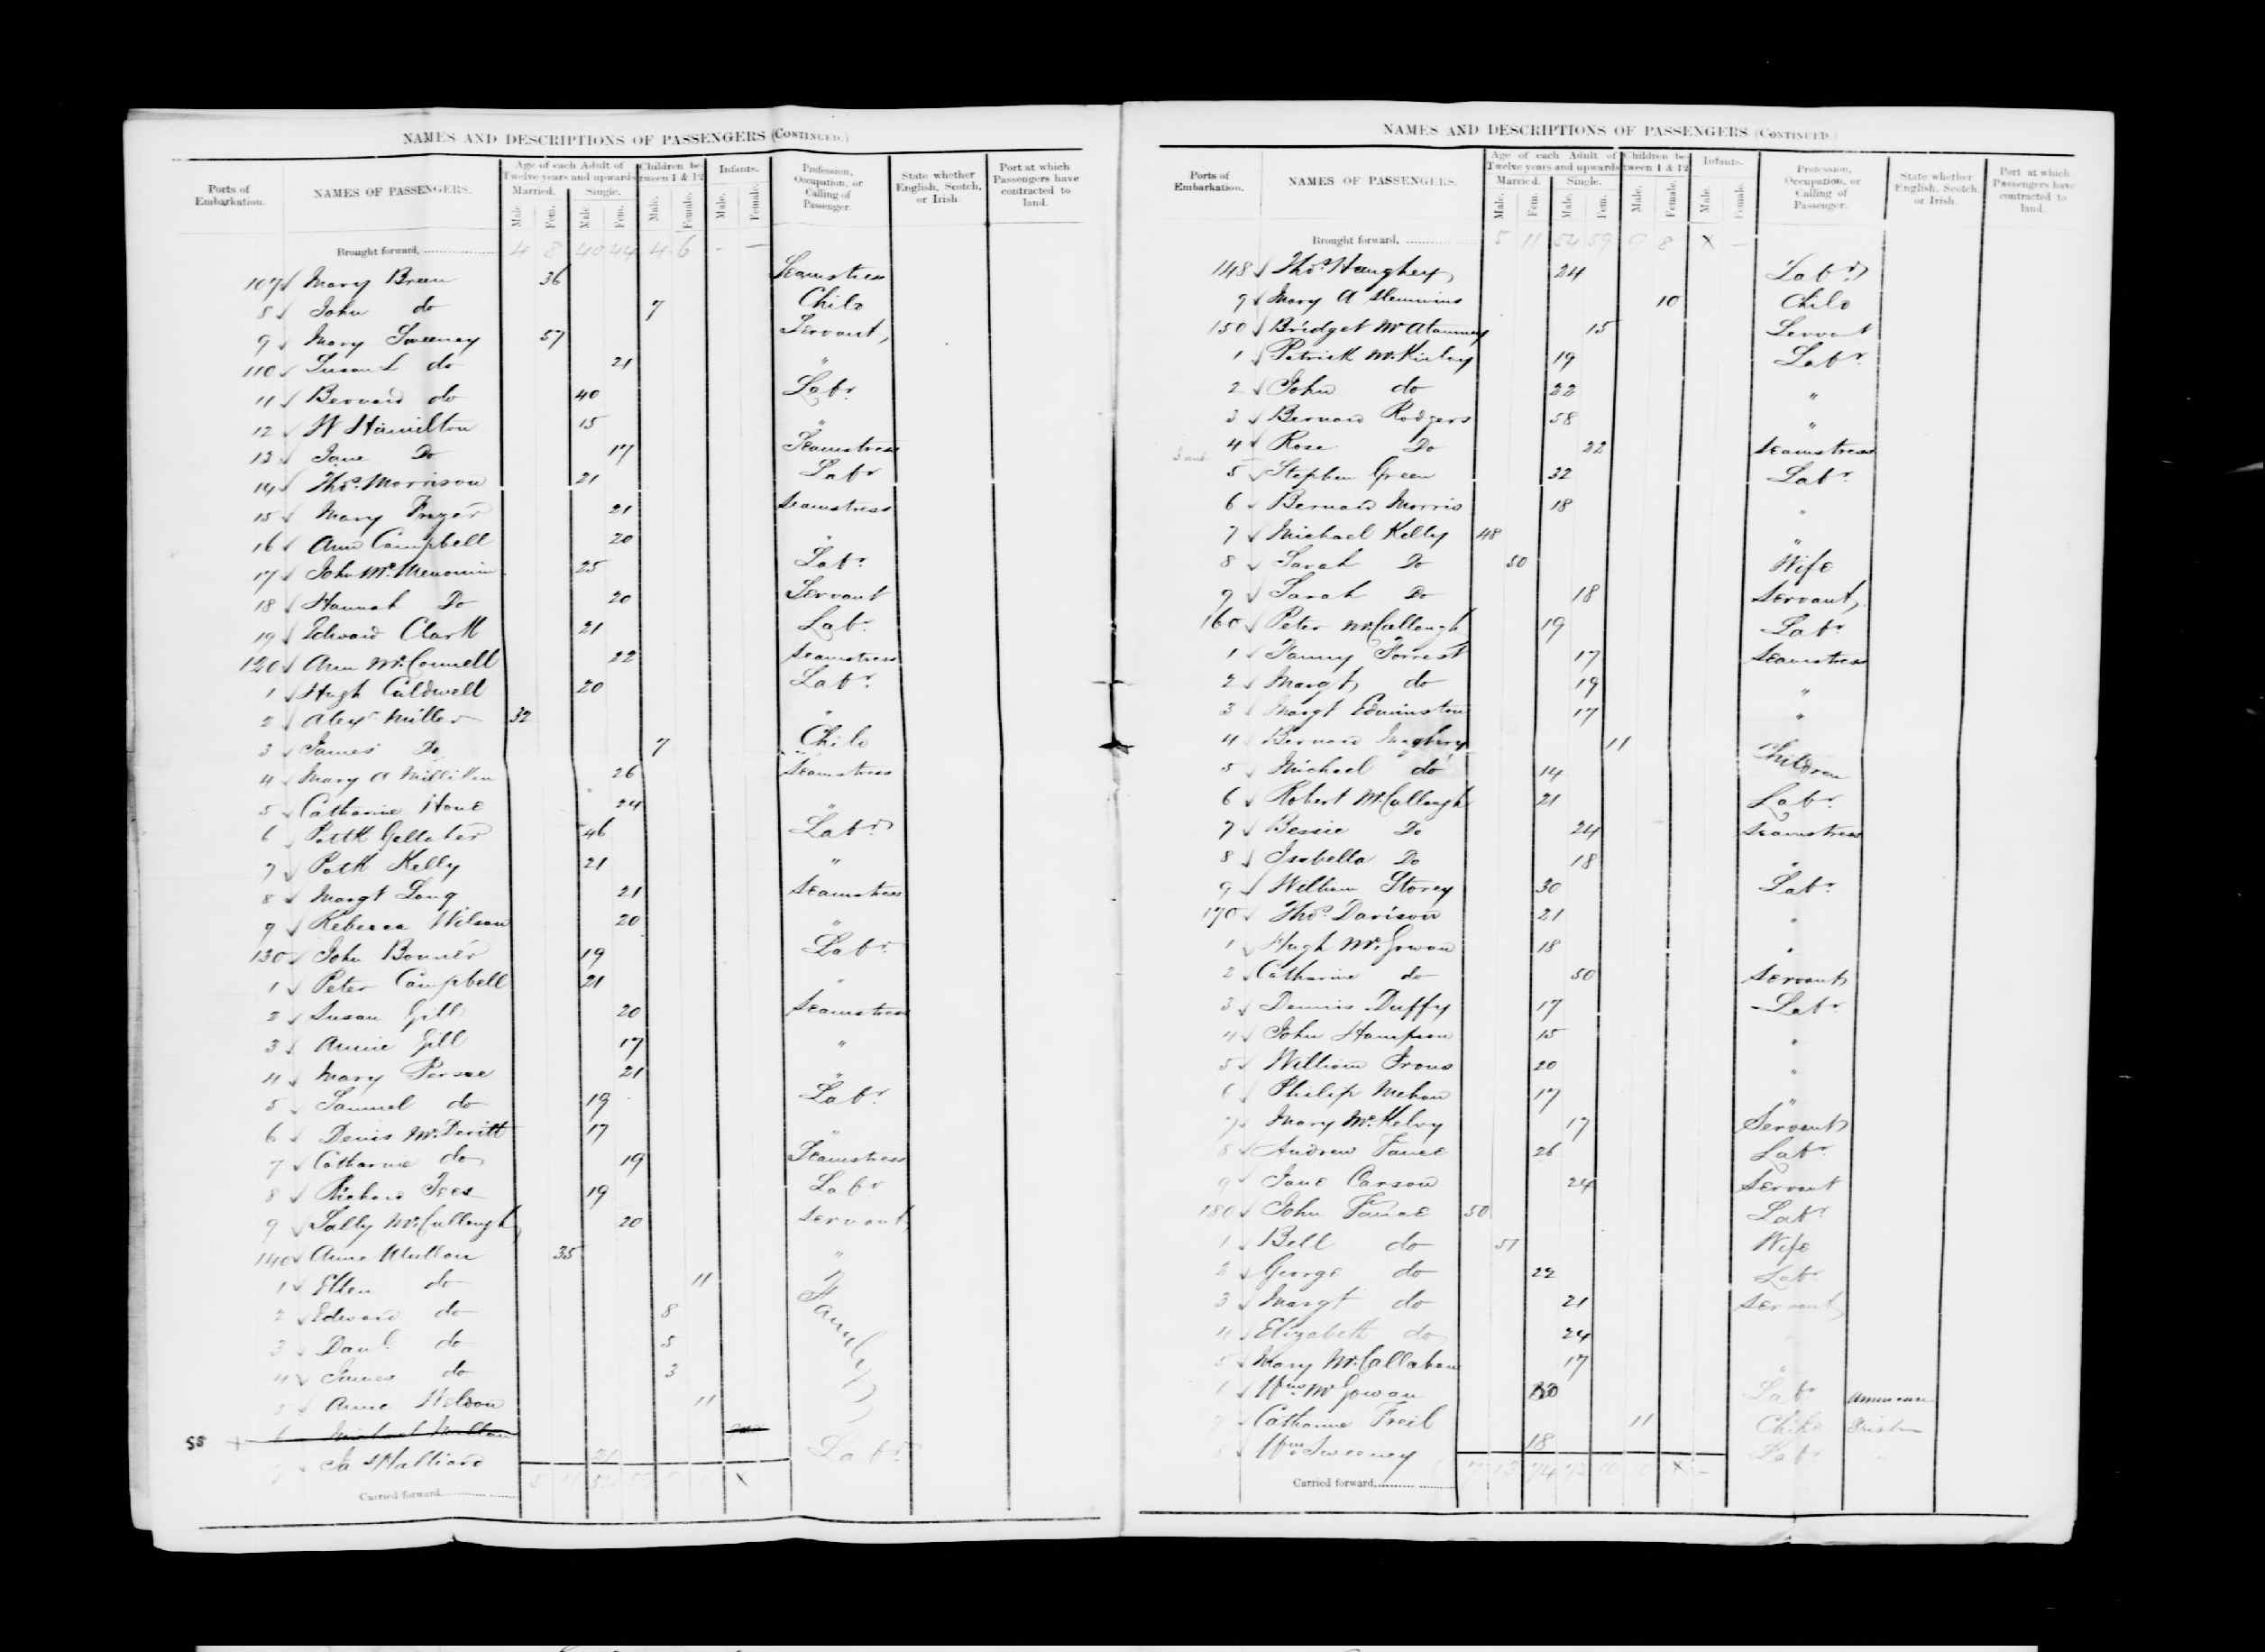 NAMES AND DESCRIPTIONS OF PASSENGERS (CONTINUED.)
Ports of Embarkation. NAMES OF PASSENGERS. Age of each Adult of Twelve years and upwards Children between 1 & 12 Infants. Profession, Occupation, or Calling of Passenger. State whether English, Scotch, or Irish. Port at which Passengers have contracted to land.
Married. Single.
Male. Fem. Male. Fem. Male. Female. Male. Female.
Brought forward, 4 8 40 44 4 6 - -
107 Mary Breen 36 Seamstress
8 John do 7 Child
9 Mary Sweeney 57 Servant
110 Susan do 21 "
11 Bernard do 40 Labr
12 W Hamilton 15 "
13 Jane Do 17 Seamstress
14 Thos. Morrison 21 Labr
15 Mary Frazer 21 Seamstress
16 Ann Campbell 20 "
17 John Mc 25 Labr
18 Hannah Do 20 Servant
19 Edward Clark 21 Labr
120 Ann McConnell 22 Seamstress
1 Hugh Caldwell 20 Labr
2 Alexr Miller 32 "
3 James Do 7 Child
4 Mary A Milliken 26 Seamstress
5 Catharine 24 "
6 Patk Gallaher 46 Labr
7 Patk Kelly 21 "
8 Margt Long 21 Seamstress
9 Rebecca Wilson 20 "
130 John Bonner 19 Labr
1 Peter Campbell 21 "
2 Susan Gill 20 Seamstress
3 Annie Gill 17 "
4 Mary 21 "
5 Samuel do 19 Labr
6 Denis McDevitt 17 "
7 Catharine do 19 Seamstress
8 Richard 19 Labr
9 Sally McCullough 20 Servant
140 Anne Mullan 35 "
1 Ellen do 11 "
2 Edward do 8 Family
3 Danl. do 5
4 James do 3
5 Anne 11
55 + 6 Michael Mullan
7 Labr
Carried forward,
NAMES AND DESCRIPTIONS OF PASSENGERS (CONTINUED.)
Ports of Embarkation. NAMES OF PASSENGERS. Age of each Adult of Twelve years and upwards Children between 1 & 12 Infants. Profession, Occupation, or Calling of Passenger. State whether English, Scotch, or Irish. Port at which Passengers have contracted to land.
Married. Single.
Male. Fem. Male. Fem. Male. Female. Male. Female.
Brought forward, 5 11 54 59 9 8 X -
148 Thos. Haughey 24 Labr
9 Mary A 10 Child
150 Bridget McAtamney 15 Servant
1 Patrick McKinley 19 Labr
2 John do 22 "
3 Bernard Rodgers 58 "
4 Rose Do 22 Seamstress
5 Stephen Green 32 Labr
6 Bernard Morris 18 "
7 Michael Kelly 48 "
8 Sarah Do 50 Wife
9 Sarah Do 18 Servant
160 Peter McCullough 19 Labr
1 Fanny Forrest 17 Seamstress
2 Margt do 19 "
3 Margt Edminston 17 "
4 Bernard 11 Children
5 Michael do 14
6 Robert McCullough 21 Labr
7 Bessie Do 24 Seamstress
8 Isabella Do 18 "
9 William Storey 30 Labr
170 Thos. Davison 21 "
1 Hugh McGowan 18 "
2 Catharine do 50 Servant
3 Dennis Duffy 17 Labr
4 John Hampson 15 "
5 William Irons 20 "
6 Philip Mehan 17 "
7 Mary McKelvy 17 Servant
8 Andrew 26 Labr
9 Jane Carson 24 Servant
180 John 50 Labr
1 Bell do 51 Wife
2 George do 22 Labr
3 Margt do 21 Servant
4 Elizabeth do 24
5 Mary McCallahan 17 "
6 Wm McGowan Labr American
7 Catharine Freil 11 Child Irish
8 Wm Sweeney 18 Labr "
Carried forward,